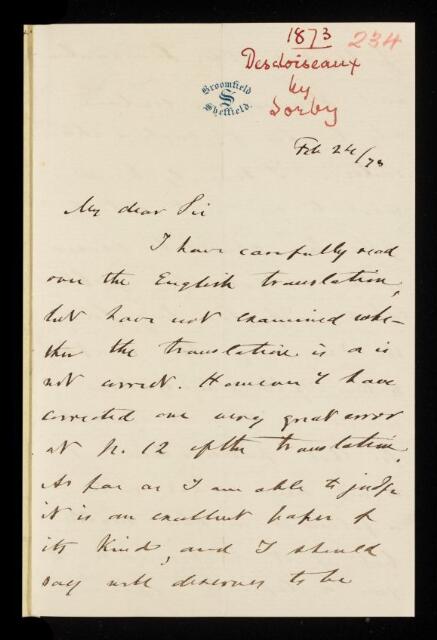 1873
234
Descloiseaux
by
Sorby
Broomfield
S
Sheffield.
Feb 24/73
My dear Sir
I have carefully read
over the English translation,
but have not examined whe-
ther the translation is or is
not correct. However I have
corrected one very great error
at p. 12 of the translation.
As far as I am able to judge
it is an excellent paper of
its kind, and I should
say well deserves to be